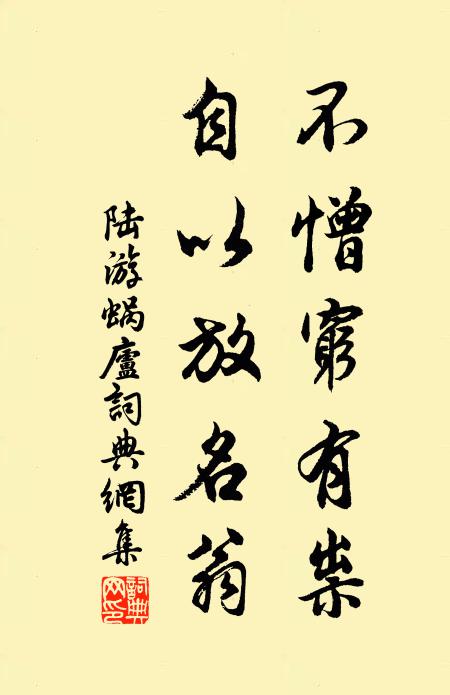 不憎窮有祟
自以放名翁
陸游蝸廬詞典網集
詞典網印